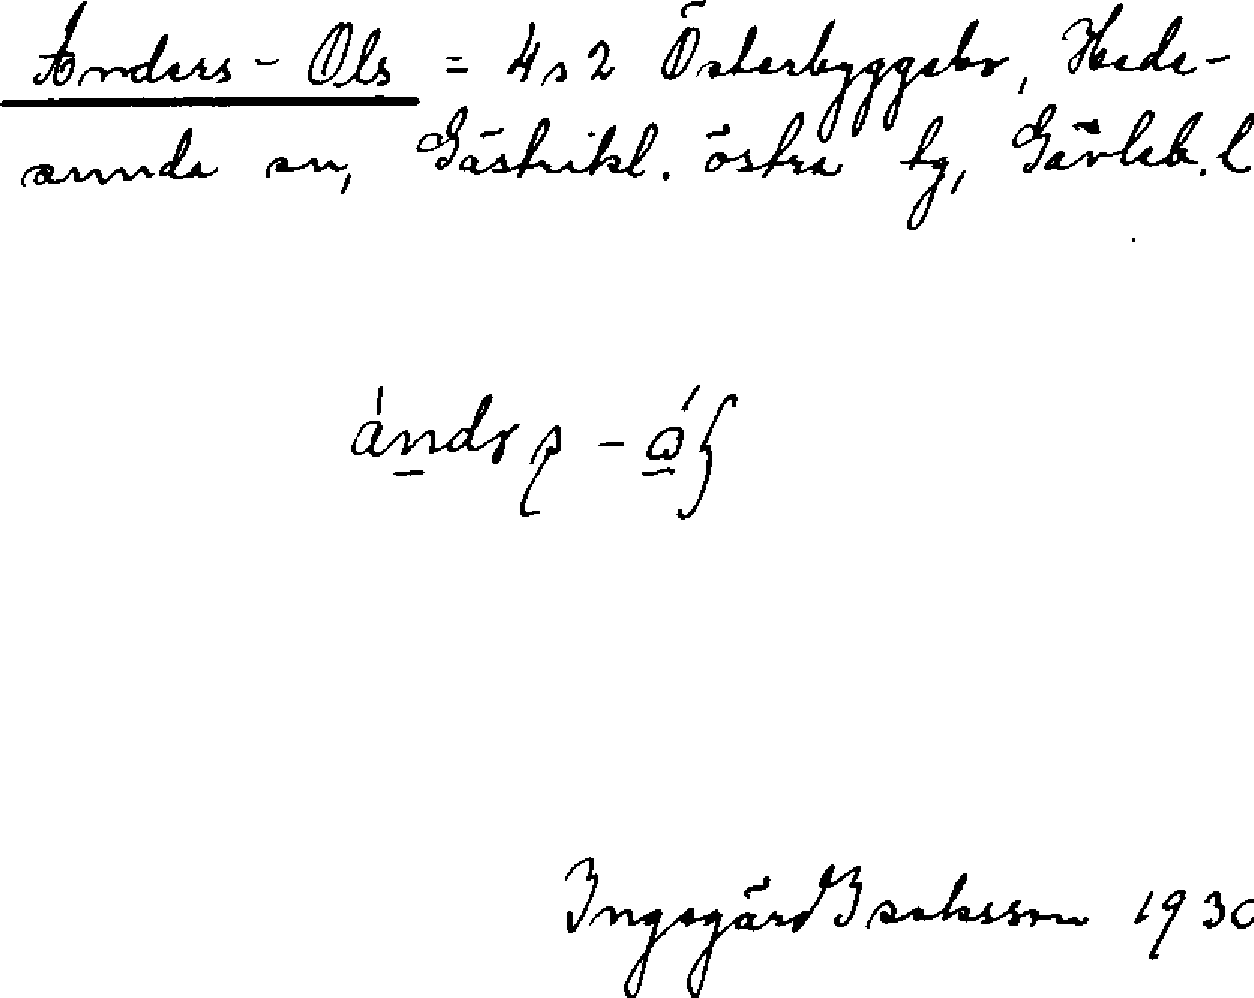 Anders-Ols = 4s2 Österbyggebo, Hede-
sunda sn, Gästrikl. östra tg, Gävleb. l
Ingegärd Isaksson 1930